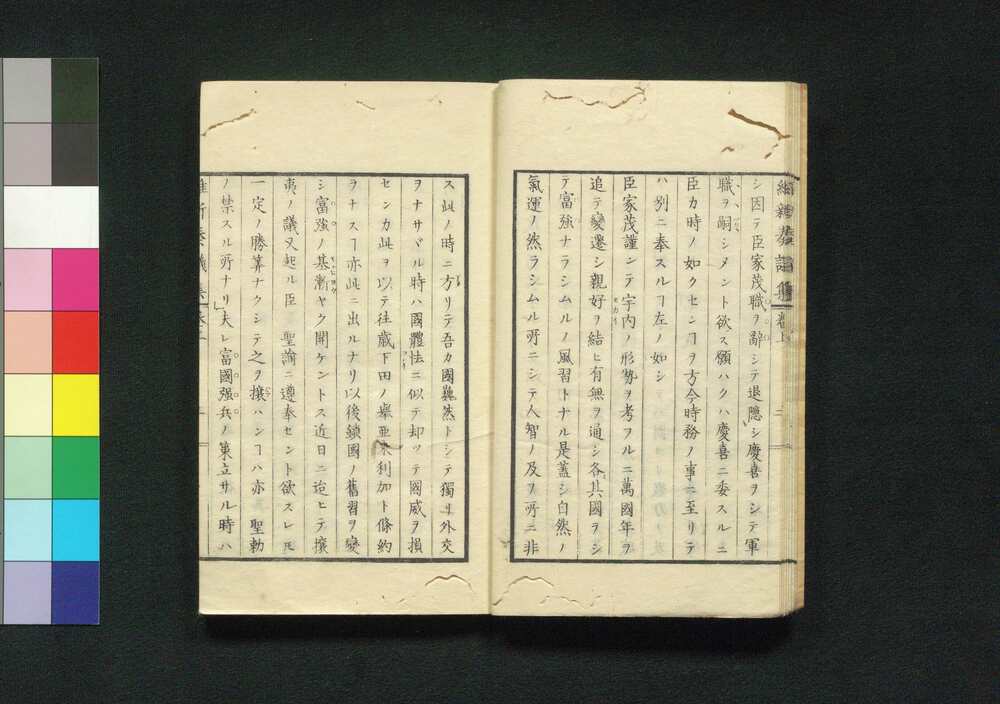 シ因テ臣家茂職ヲ辭シテ退隱シ慶喜ヲシテ軍
職ヲ嗣シメント欲ス願ハクハ慶喜ニ委スルニ
臣カ時ノ如クセンヿヲ方今時務ノ事ニ至リテ
ハ別ニ奉スルヿ左ノ如シ
臣家茂謹ンテ宇内ノ形勢ヲ考フルニ萬國年ヲ
追テ變遷シ親好ヲ結ヒ有無ヲ通シ各其國ヲシ
テ富強ナラシムルノ風習トナル是蓋シ自然ノ
氣運ノ然ラシムル所ニシテ人智ノ及フ所ニ非
ス此ノ時ニ方リテ吾カ國巍然トシテ獨リ外交
ヲナサヾル時ハ國體怯ニ似テ却ツテ國威ヲ損
センカ此ヲ以テ往歳下田ノ擧亜米利加ト條約
ヲナスヿ亦此ニ出ルナリ以後鎖國ノ舊習ヲ變
シ富強ノ基漸ヤク開ケントス近日ニ迨ヒテ攘
夷ノ議又起ル臣 聖諭ニ遵奉セント欲スレ𪜈
一定ノ勝算ナクシテ之ヲ攘ハンヿハ亦 聖勅
ノ禁スル所ナリ」夫レ富國强兵ノ策立サル時ハ